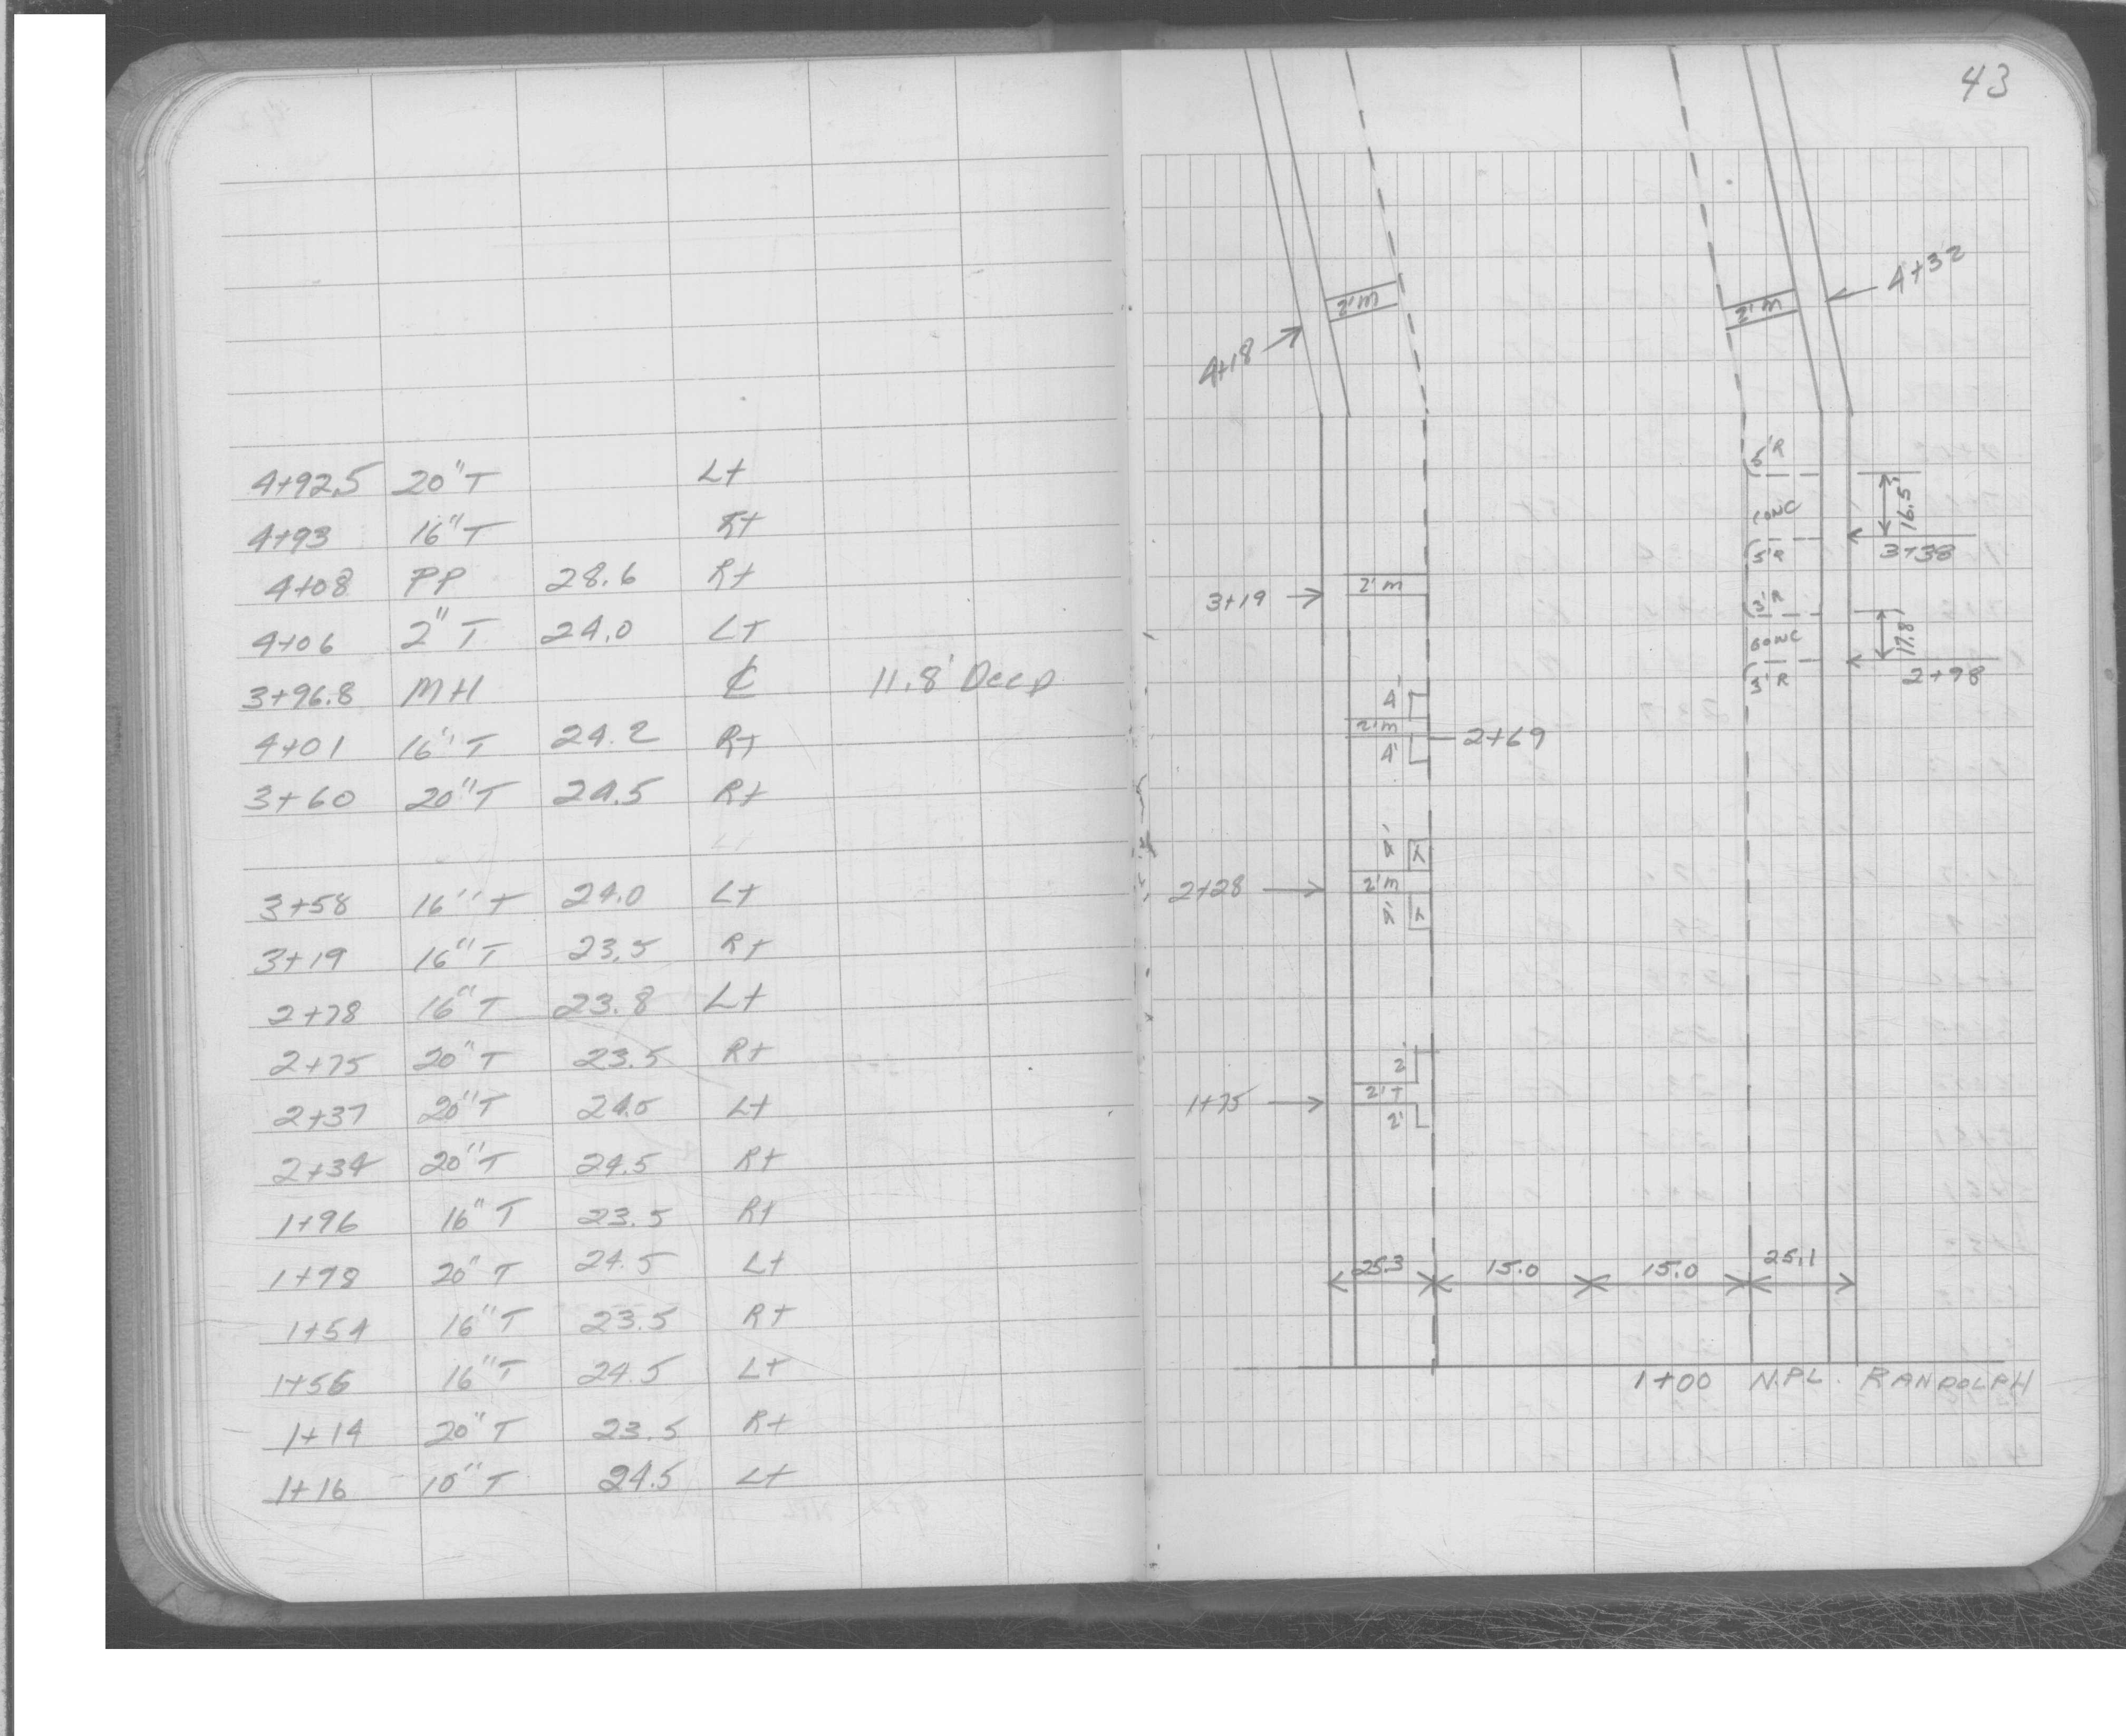 4+92.5 20"T Lt
4+93 16"T Rt
4+08 PP 28.6 Rt
4+06 2"T 24.0 LT
3+96.8 MH ℄ 11.8' Deep
4+01 16"T 24.2 RT
3+60 20"T 24.5 Rt
3+58 16"T 24.0 Lt
3+19 16"T 23.5 Rt
2+78 16"T 23.8 Lt
2+75 20"T 23.5 Rt
2+37 20"T 24.0 Lt
2+34 20"T 24.5 Rt
1+96 16"T 23.5 Rt
1+98 20"T 24.5 Lt
1+54 16"T 23.5 Rt
1+56 16"T 24.5 Lt
1+14 20"T 23.5 Rt
1+16 10"T 24.5 Lt
43
4+32
2'm
2'm
4+18
5'R
16.5'
CONC
3+38
5'R
2'm
3+19
3'R
17.8'
CONC
2+98
3'R
4'
2'm
2+69
4'
2+28
2'm
2'
1+75
2'T
2'
25.3 15.0 15.0 25.1
1+00 N.PL. RANDOLPH